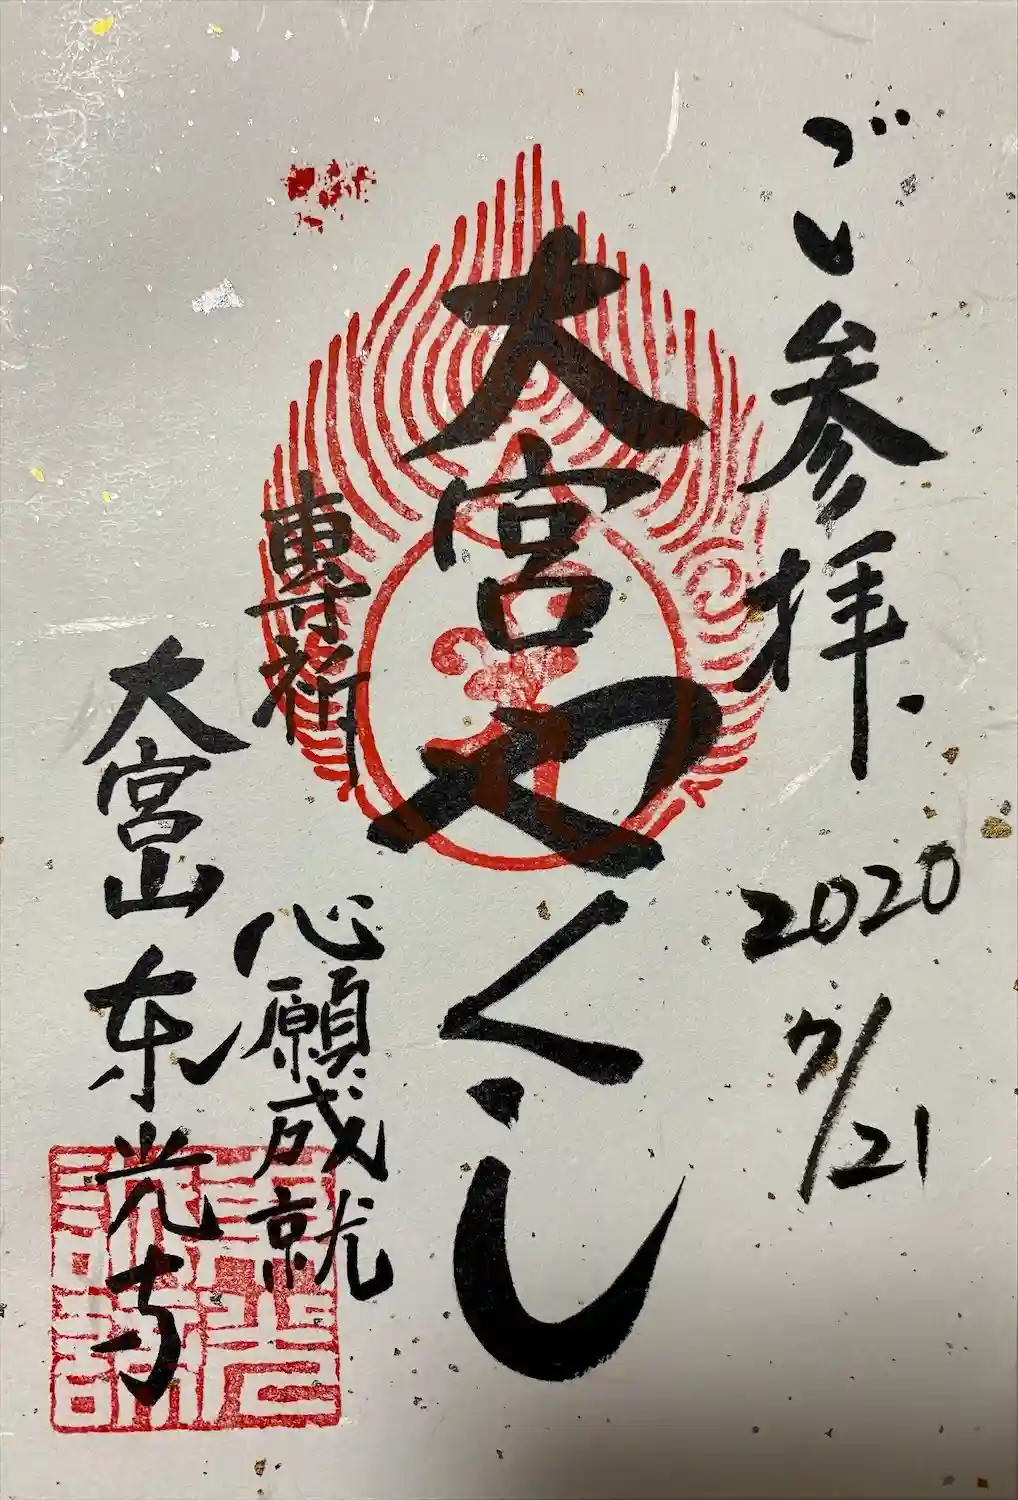 ご参拝
2020
7/21
大宮やくし
専祈
心願成就
大宮山東光寺